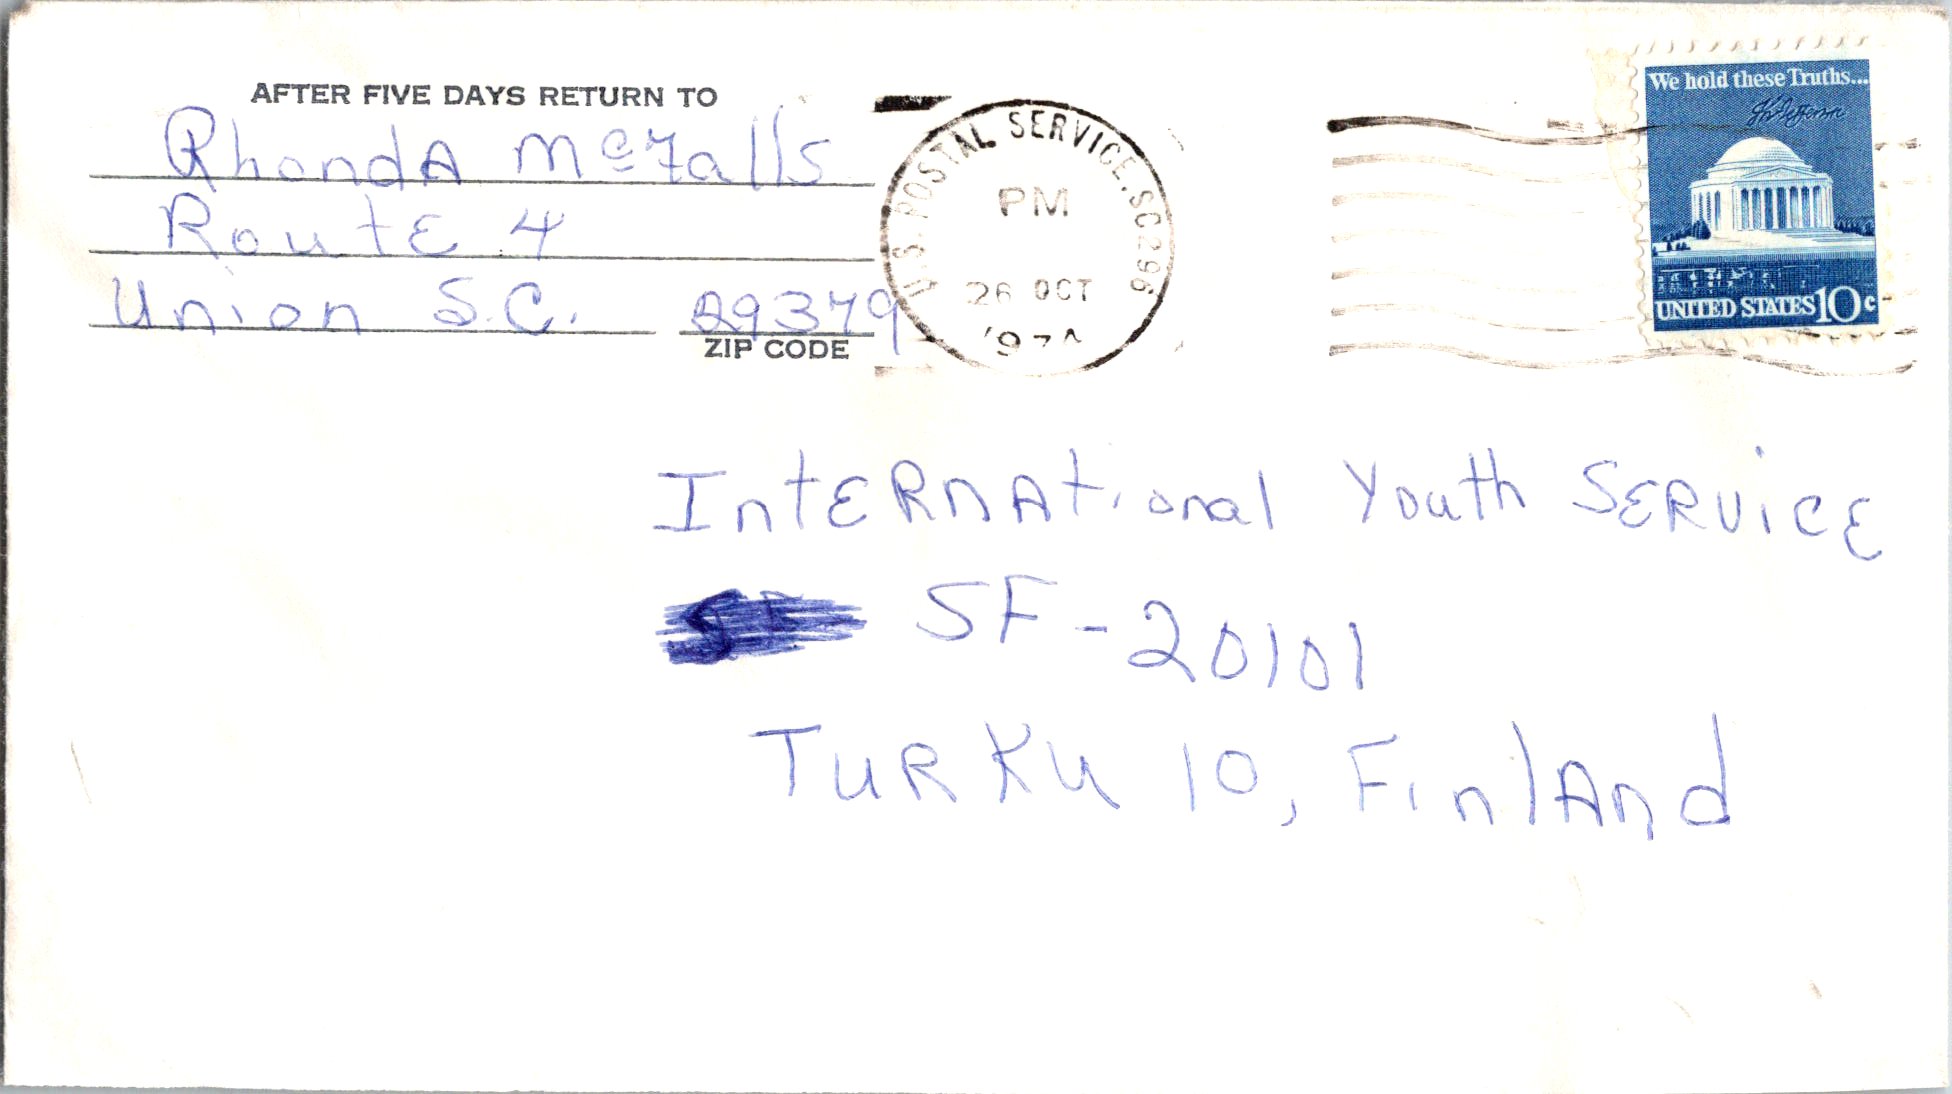 AFTER FIVE DAYS RETURN TO
Rhonda McFalls
Route 4
Union S.C. 29379
ZIP CODE
U.S. POSTAL SERVICE. SC 296
PM
26 OCT
We hold these Truths...
Th Jefferson
UNITED STATES 10c
International Youth Service
SF SF-20101
Turku 10, Finland